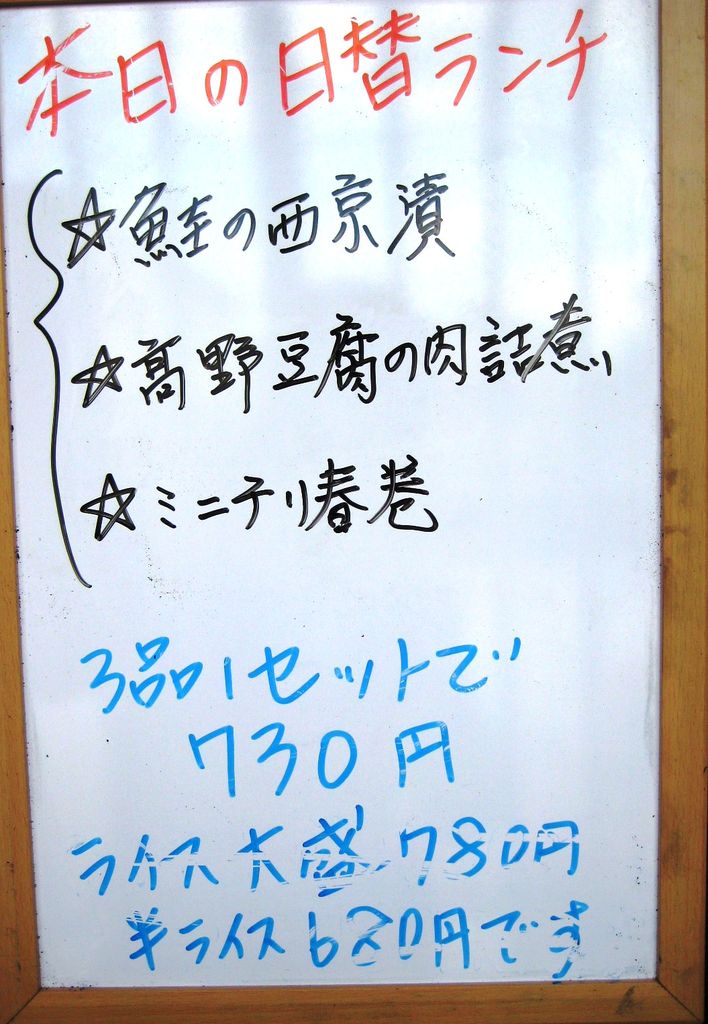 本日の日替ランチ
☆鮭の西京漬
☆高野豆腐の肉詰煮
☆ミニチリ春巻
3品1セットで
730円
ライス大盛780円
半ライス680円です